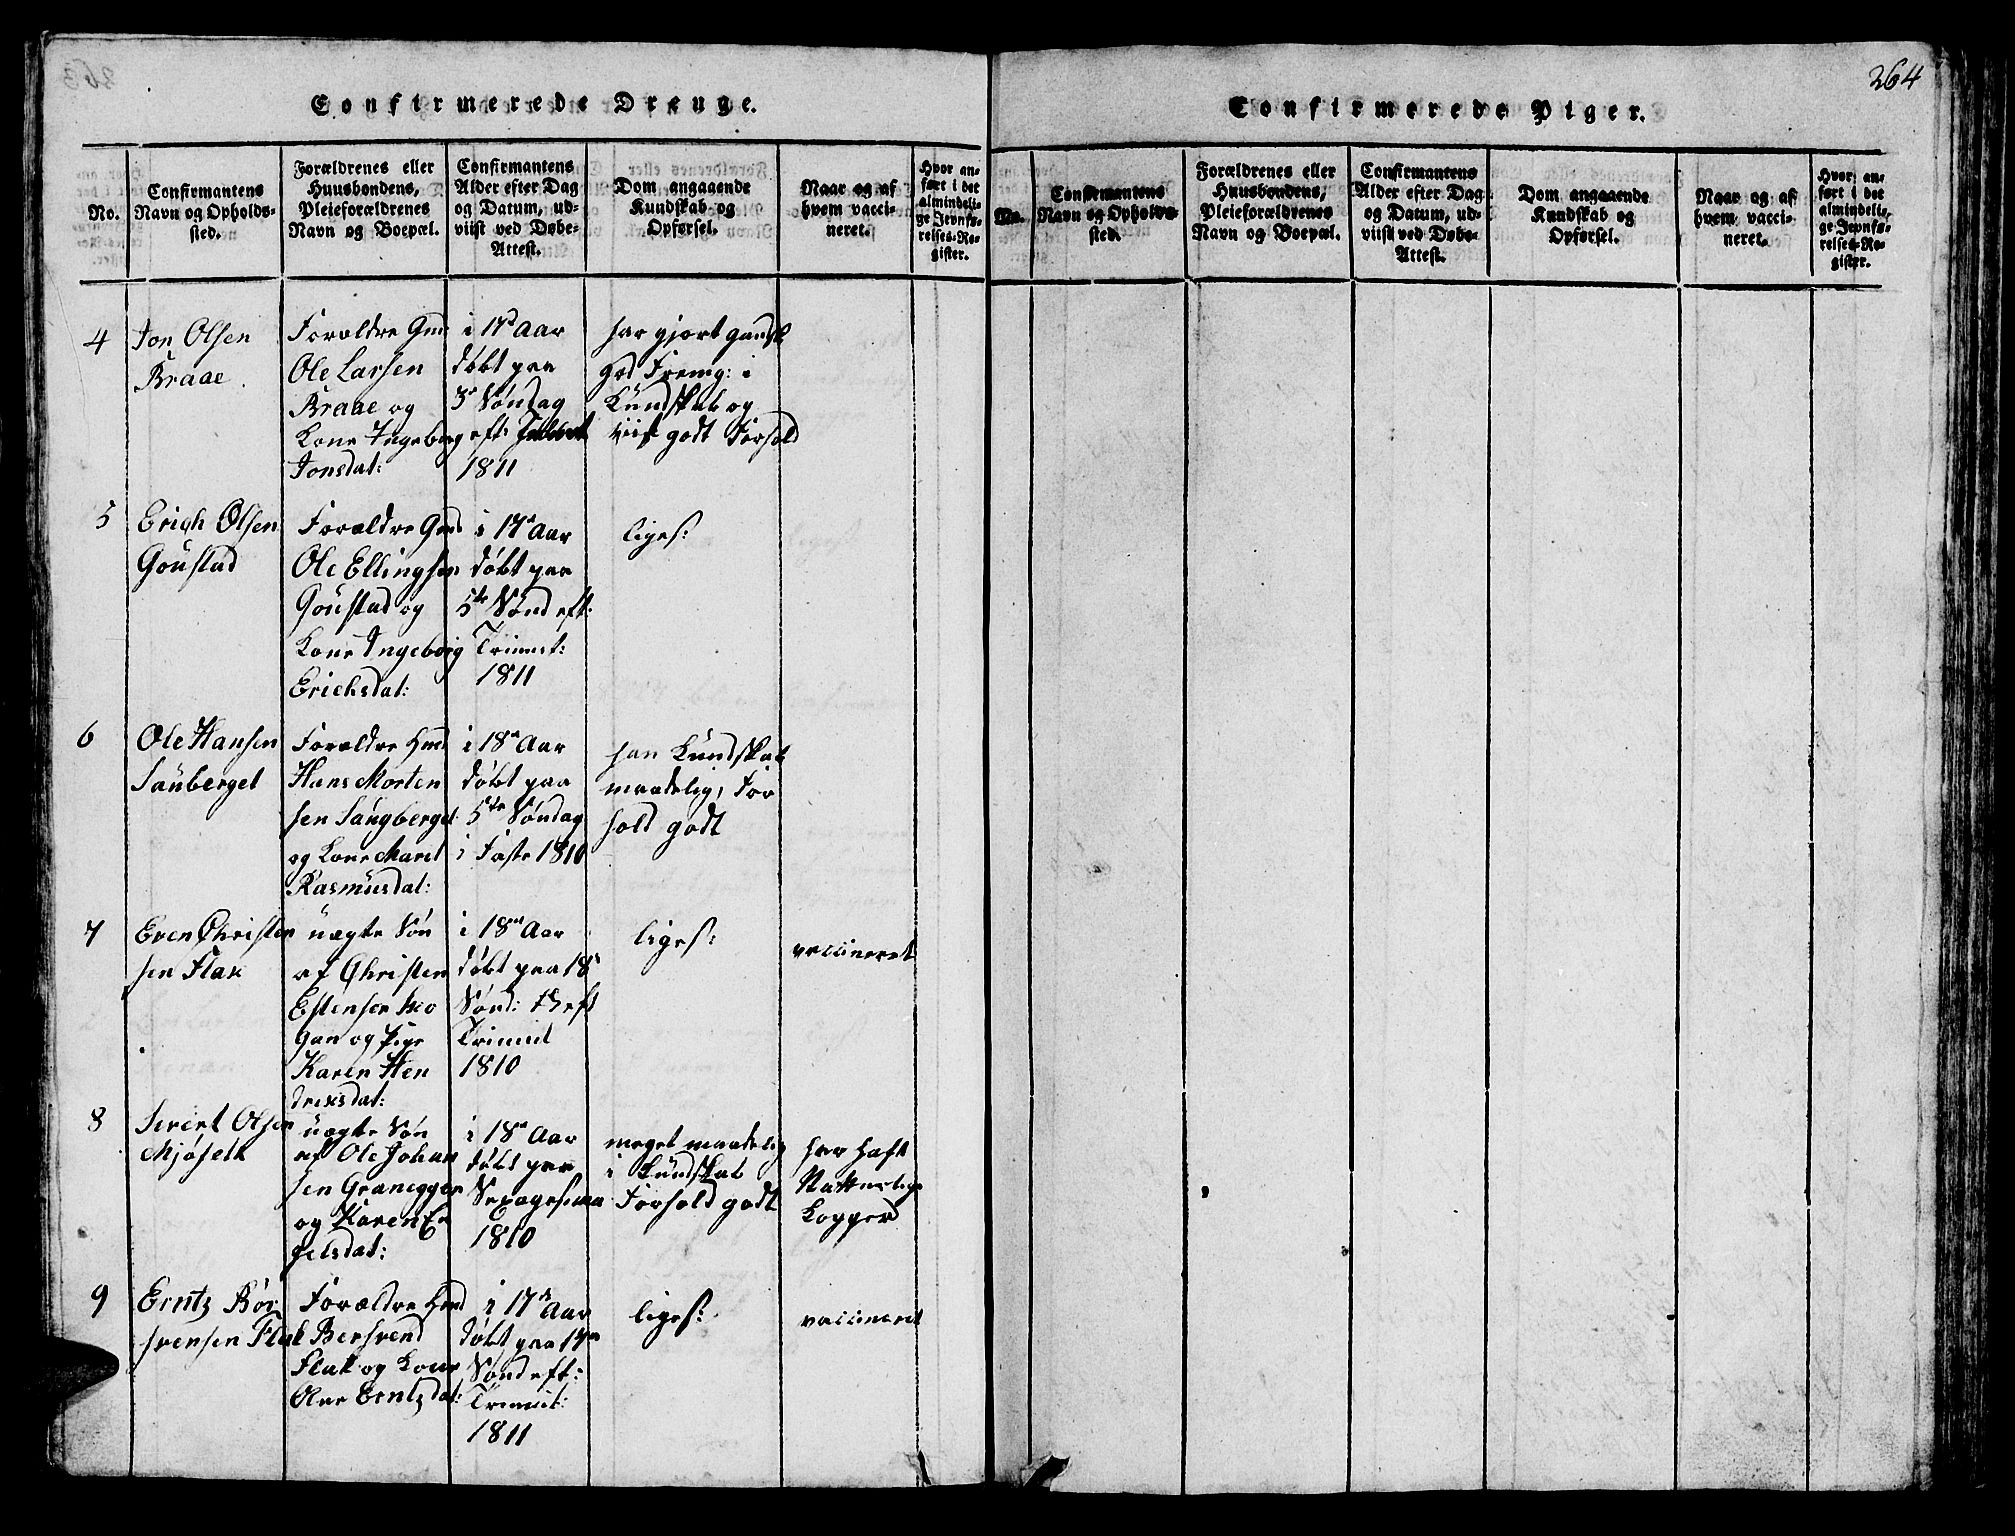 264
Confirmerede Drenge.
No.
Confirmantens
Navn og Opholds-
sted.
Forældrenes eller
Huusbondens,
Pleieforældrenes
Navn og Boepæl.
Confirmantens
Alder efter Dag
og Datum, ud-
viist ved Døbe-
Attest.
Dom angaaende
Kundskab og
Opførsel.
Naar og af
hvem vacci-
neret.
Hvor an-
ført i det
almindeli-
ge Jevnfø-
relses-Re-
gister.
4
Jon Olsen
Braae.
Forældre Gm:
Ole Larsen
Braae og
Kone Ingeborg
Jonsdat:
i 17d Aar
døbt paa
3s Søndag
eft:
1811
har gjort gandsk
god Fremg: i
Kundskab og
viist godt Forhold
5
Erich Olsen
Goustad
Forældre Gmd
Ole Ellingsen
Goustad og
Kone Ingeborg
Erichsdat:
i 17d Aar
døbt paa
5te Sønd eft:
Trinit:
1811
liges:
6
Ole Hansen
Sauberget
Forældre Hmd
Hans Morten
sen Saugberget
og Kone Marit
Rasmusdat:
i 18de Aar
døbt paa
5te Søndag
i Faste 1810
han Kundskab
maadelig, For
hold godt
7
Even Christen
sen Flak
uægte Søn
af Christen
Estensen
og Pige
Karen Hen
driksdat:
i 18de Aar
døbt paa 18
Sønd: eft
Trinit
1810
liges:
vaccineret
8
Sivert Olsen
Mjøselk
uægte Søn
af Ole Johan
sen Graneggen
og Karen En
gelsdat:
i 18de Aar
døbt paa
Sexagesima
1810
meget maadelig
i Kundskab
Forhold godt
har haft
Naturlige
Kopper
9
Erntz Bør
svensen Flak
Forældre Hmd
Bersvend
Flak og Kone
Ane Erntzdat:
i 17de Aar
døbt paa 17de
Sønd eft:
Trinit:
1811
liges:
vaccineret
Confirmerede Piger.
No.
Confirmantens
Navn og Opholds-
sted.
Forældrenes eller
Huusbondens,
Pleieforældrenes
Navn og Boepæl.
Confirmantens
Alder efter Dag
og Datum, ud-
viist ved Døbe-
Attest.
Dom angaaende
Kundskab og
Opførsel.
Naar og af
hvem vacci-
neret.
Hvor an-
ført i det
almindeli-
ge Jevnfø-
relses-Re-
gister.